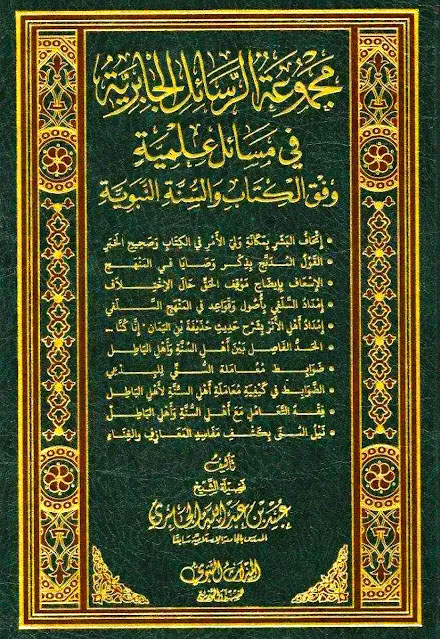 مجموعة الرسائل الجابرية
في مسائل علمية
وفق الكتاب والسنة النبوية
• إتحاف البشر بمكانة ولي الأمر في الكتاب وصحيح الخبر
• القول المدبج بذكر وصايا في المنهج
• الإسعاف بإيضاح موقف الحق حال الاختلاف
• إمداد السلفي بأصول وقواعد في المنهج السلفي
• إمداد أهل الأثر بشرح حديث حذيفة بن اليمان، إنا كنا ...
• الحد الفاصل بين أهل السنة وأهل الباطل
• ضوابط معاملة السني للبدعي
• الضوابط في كيفية معاملة أهل السنة لأهل الباطل
• فقه التعامل مع أهل السنة وأهل الباطل
• نيل المنى بكشف مفاسد المعازف والغناء
تأليف
فضيلة الشيخ
عبيد بن عبد الله الجابري
المدرس بالجامعة الإسلامية سابقا
الميراث النبوي
للنشر والتوزيع